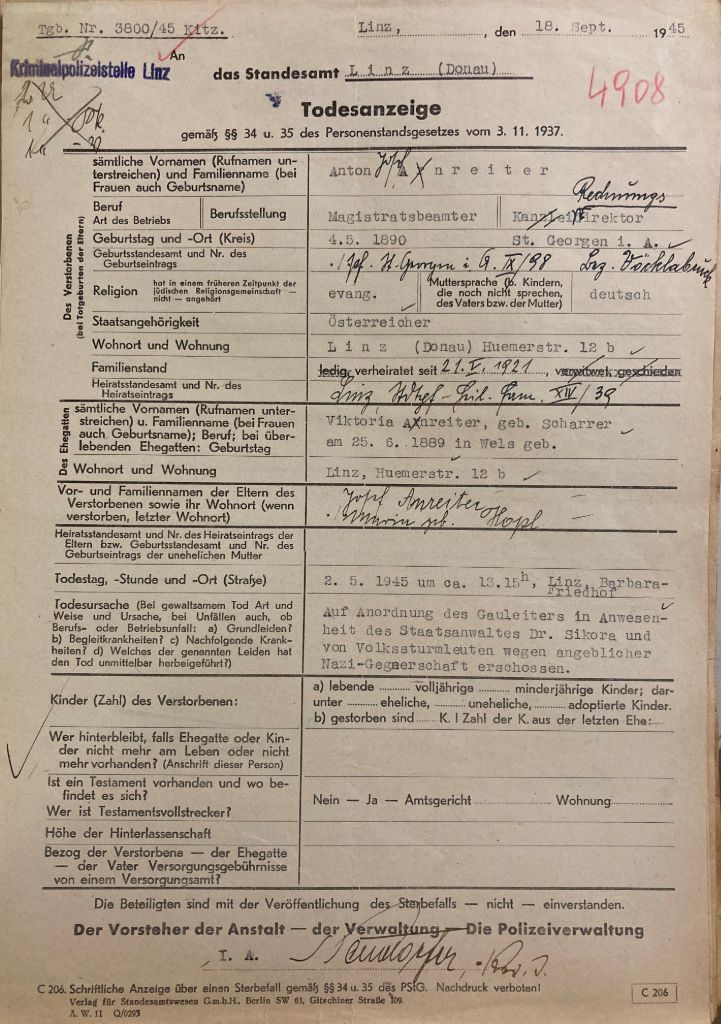 Tgb. Nr. 3800/45 Kitz. Linz, , den 18. Sept. 1945
An
Kriminalpolizeistelle Linz
das Standesamt Linz (Donau)
4908
Todesanzeige
gemäß §§ 34 u. 35 des Personenstandsgesetzes vom 3. 11. 1937.
Des Verstorbenen
(bei Totgeburten der Eltern)
sämtliche Vornamen (Rufnamen un-
terstreichen) und Familienname (bei
Frauen auch Geburtsname)
Anton Josef Anreiter
Beruf
Art des Betriebs
Berufsstellung
Magistratsbeamter
Rechnungs
Kanzleidirektor
Geburtstag und -Ort (Kreis)
4.5. 1890 St. Georgen i. A.
Geburtsstandesamt und Nr. des
Geburtseintrags
St. Georgen i. A. IX/98 Bez. Vöcklabruck
Religion
hat in einem früheren Zeitpunkt der
jüdischen Religionsgemeinschaft —
nicht — angehört
evang.
Muttersprache (b. Kindern,
die noch nicht sprechen,
des Vaters bzw. der Mutter)
deutsch
Staatsangehörigkeit
Österreicher
Wohnort und Wohnung
Linz (Donau) Huemerstr. 12 b
Familienstand
ledig, verheiratet seit 21. V. 1921, verwitwet, geschieden
Heiratsstandesamt und Nr. des
Heiratseintrags
Linz, XIV/39
Des Ehegatten
sämtliche Vornamen (Rufnamen unter-
streichen) u. Familienname (bei Frauen
auch Geburtsname); Beruf; bei über-
lebenden Ehegatten: Geburtstag
Viktoria Anreiter, geb. Scharrer
am 25. 6. 1889 in Wels geb.
Wohnort und Wohnung
Linz, Huemerstr. 12 b
Vor- und Familiennamen der Eltern des
Verstorbenen sowie ihr Wohnort (wenn
verstorben, letzter Wohnort)
Josef Anreiter —
Maria geb. Hopl —
Heiratsstandesamt und Nr. des Heiratseintrags der
Eltern bzw. Geburtsstandesamt und Nr. des
Geburtseintrags der unehelichen Mutter
Todestag, -Stunde und -Ort (Straße)
2. 5. 1945 um ca. 13.15h, Linz, Barbara-
Friedhof
Todesursache (Bei gewaltsamem Tod Art und
Weise und Ursache, bei Unfällen, auch ob
Berufs- oder Betriebsunfall: a) Grundleiden?
b) Begleitkrankheiten? c) Nachfolgende Krank-
heiten? d) Welches der genannten Leiden hat
den Tod unmittelbar herbeigeführt?)
Auf Anordnung des Gauleiters in Anwesen-
heit des Staatsanwaltes Dr. Sikora und
von Volkssturmleuten wegen angeblicher
Nazi-Gegnerschaft erschossen.
Kinder (Zahl) des Verstorbenen:
a) lebende volljährige minderjährige Kinder; dar-
unter eheliche, uneheliche, adoptierte Kinder.
b) gestorben sind K. I Zahl der K. aus der letzten Ehe:
Wer hinterbleibt, falls Ehegatte oder Kin-
der nicht mehr am Leben oder nicht
mehr vorhanden? (Anschrift dieser Person)
Ist ein Testament vorhanden und wo be-
findet es sich?
Wer ist Testamentsvollstrecker?
Nein — Ja — Amtsgericht Wohnung
Höhe der Hinterlassenschaft
Bezog der Verstorbene — der Ehegatte
— der Vater Versorgungsgebührnisse
von einem Versorgungsamt?
Die Beteiligten sind mit der Veröffentlichung des Sterbefalls — nicht — einverstanden.
Der Vorsteher der Anstalt — der Verwaltung — Die Polizeiverwaltung
I. A.
C 206. Schriftliche Anzeige über einen Sterbefall gemäß §§ 34 u. 35 des PStG. Nachdruck verboten!
Verlag für Standesamtswesen G.m.b.H., Berlin SW 61, Gitschiner Straße 109.
A. W. 11 Q/0293
C 206